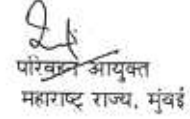 परिवहन आयुक्त
महाराष्ट्र राज्य, मुंबई